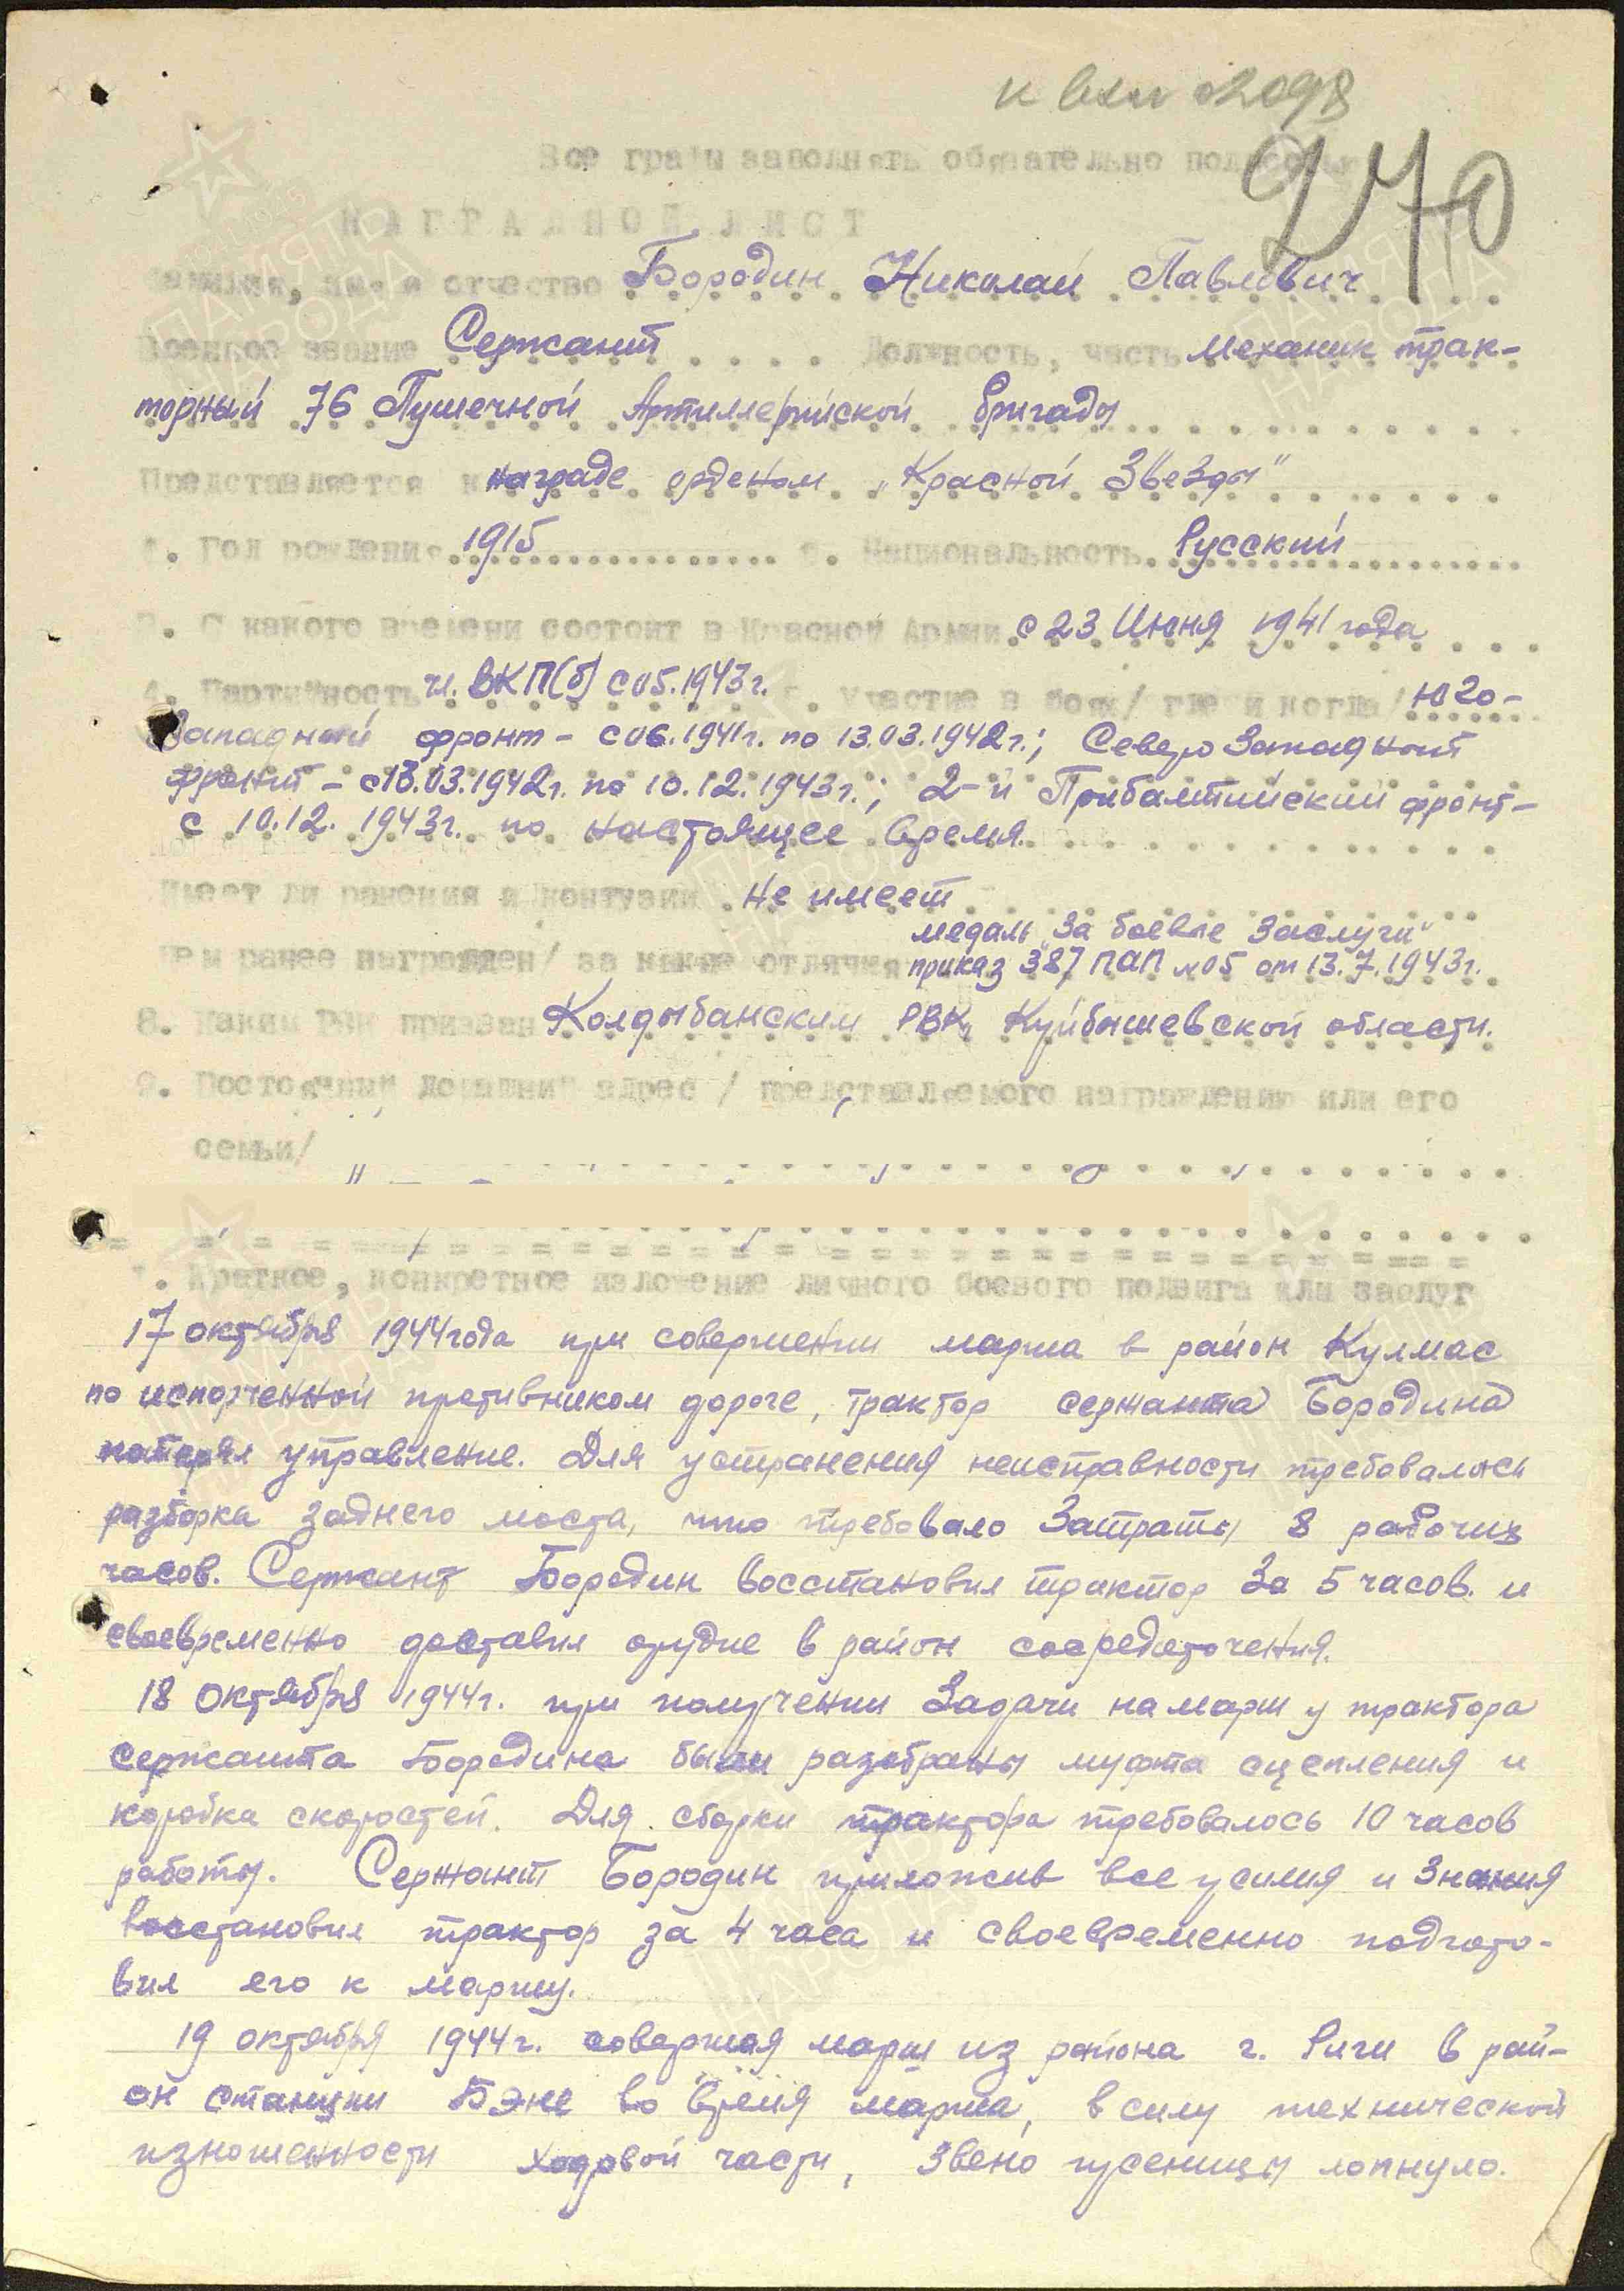 к вхн 02098
Все графы заполнять обязательно полностью
270
НАГРАДНОЙ ЛИСТ
Фамилия, имя и отчество Бородин Николай Павлович
Военное звание Сержант Должность, часть механик трак-
торный 76 Пушечной Артиллерийской бригады
Представляется к награде орденом „Красной Звезды"
1. Год рождения 1915 2. Национальность Русский
3. С какого времени состоит в Красной Армии с 23 Июня 1941 года
4. Партийность чл. ВКП(б) с 05.1943г. Участие в боях/ где и когда/ Юго-
Западный фронт - с 06.1941г. по 13.03.1942г.; Северо Западный
фронт - с 13.03.1942г. по 10.12.1943г.; 2-й Прибалтийский фронт -
с 10.12.1943г. по настоящее время.
Имеет ли ранения и контузии Не имеет
медаль „За боевые Заслуги"
Чем ранее награжден/ за какие отличия приказ 387 ПАП №05 от 13.7.1943г.
8. Каким РВК призван Колдыбанским РВК, Куйбышевской области.
9. Постоянный домашний адрес / представляемого награждению или его
семьи/
1. Краткое, конкретное изложение личного боевого подвига или заслуг
17 октября 1944 года при совершении марша в район Кулмас
по испорченной противником дороге, трактор сержанта Бородина
потерял управление. Для устранения неисправности требовалось
разборка заднего моста, что требовало Затраты 8 рабочих
часов. Сержант Бородин восстановил трактор За 5 часов. и
своевременно доставил орудие в район сосредоточения.
18 Октября 1944г. при получении Задачи на марш у трактора
сержанта Бородина были разобраны муфта сцепления и
коробка скоростей. Для сборки трактора требовалось 10 часов
работы. Сержант Бородин приложив все усилия и Знания
восстановил трактор за 4 часа и своевременно подгото-
вил его к маршу.
19 октября 1944г. совершая марш из района г. Риги в рай-
он станции Бэне во время марша, в силу технической
изношенности ходовой части, Звено гусеницы лопнуло.